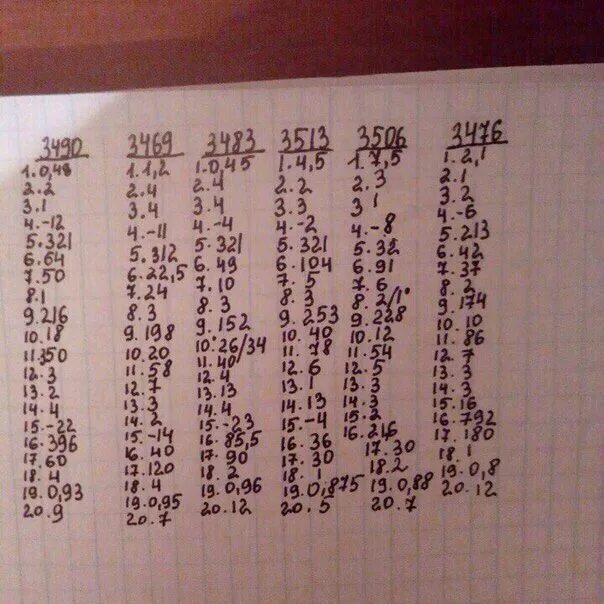 3490 3469 3483 3513 3506 3476
1.0,48 1.1,2 1.0,45 1.4,5 1.7,5 1.2,1
2.2 2.4 2.4 2.2 2.3 2.1
3.1 3.4 3.4 3.3 3 1 3.2
4.-12 4.-11 4.-4 4.-2 4.-8 4.-6
5.321 5.312 5.321 5.321 5.32 5.213
6.64 6.22,5 6.49 6.104 6.91 6.42
7.50 7.24 7.10 7.5 7.6 7.37
8.1 8.3 8.3 8.3 8.2/1. 8.2
9.216 9.198 9.152 9.253 9.228 9.174
10.18 10.20 10.26/34 10.40 10.12 10.10
11.350 11.58 11.40 11.78 11.54 11.86
12.3 12.7 12.4 12.6 12.5 12.7
13.2 13.3 13.13 13.1 13.3 13.3
14.4 14.2 14.4 14.13 14.3 14.3
15.-22 15.-14 15.-23 15.-4 15.2 15.16
16.396 16.40 16.85,5 16.36 16.216 16.792
17.60 17.120 17.90 17.30 17.30 17.180
18.4 18.4 18.2 18.1 18.2 18.1
19.0,93 19.0,95 19.0,96 19.0,875 19.0,88 19.0,8
20.9 20.7 20.12 20.5 20.7 20.12